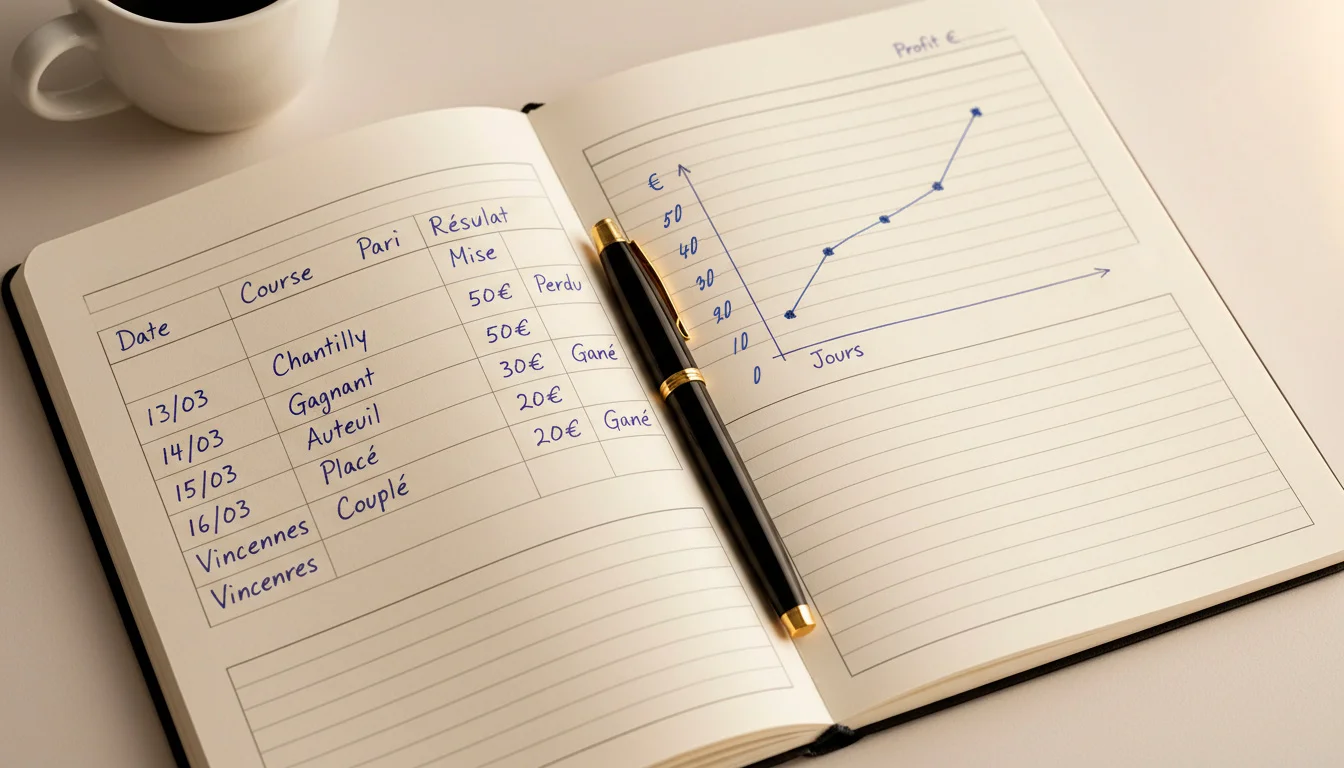 Date Course Pari Résulat
Mise
50€ Perdu
13/03 Chantilly 50€
14/03 Gagnant 30€ Gané
15/03 Auteuil 20€
16/03 Placé 20€ Gané
Vincennes Couplé
Vincenres
Profit €
€
50
40
30
20
10
0
Jours